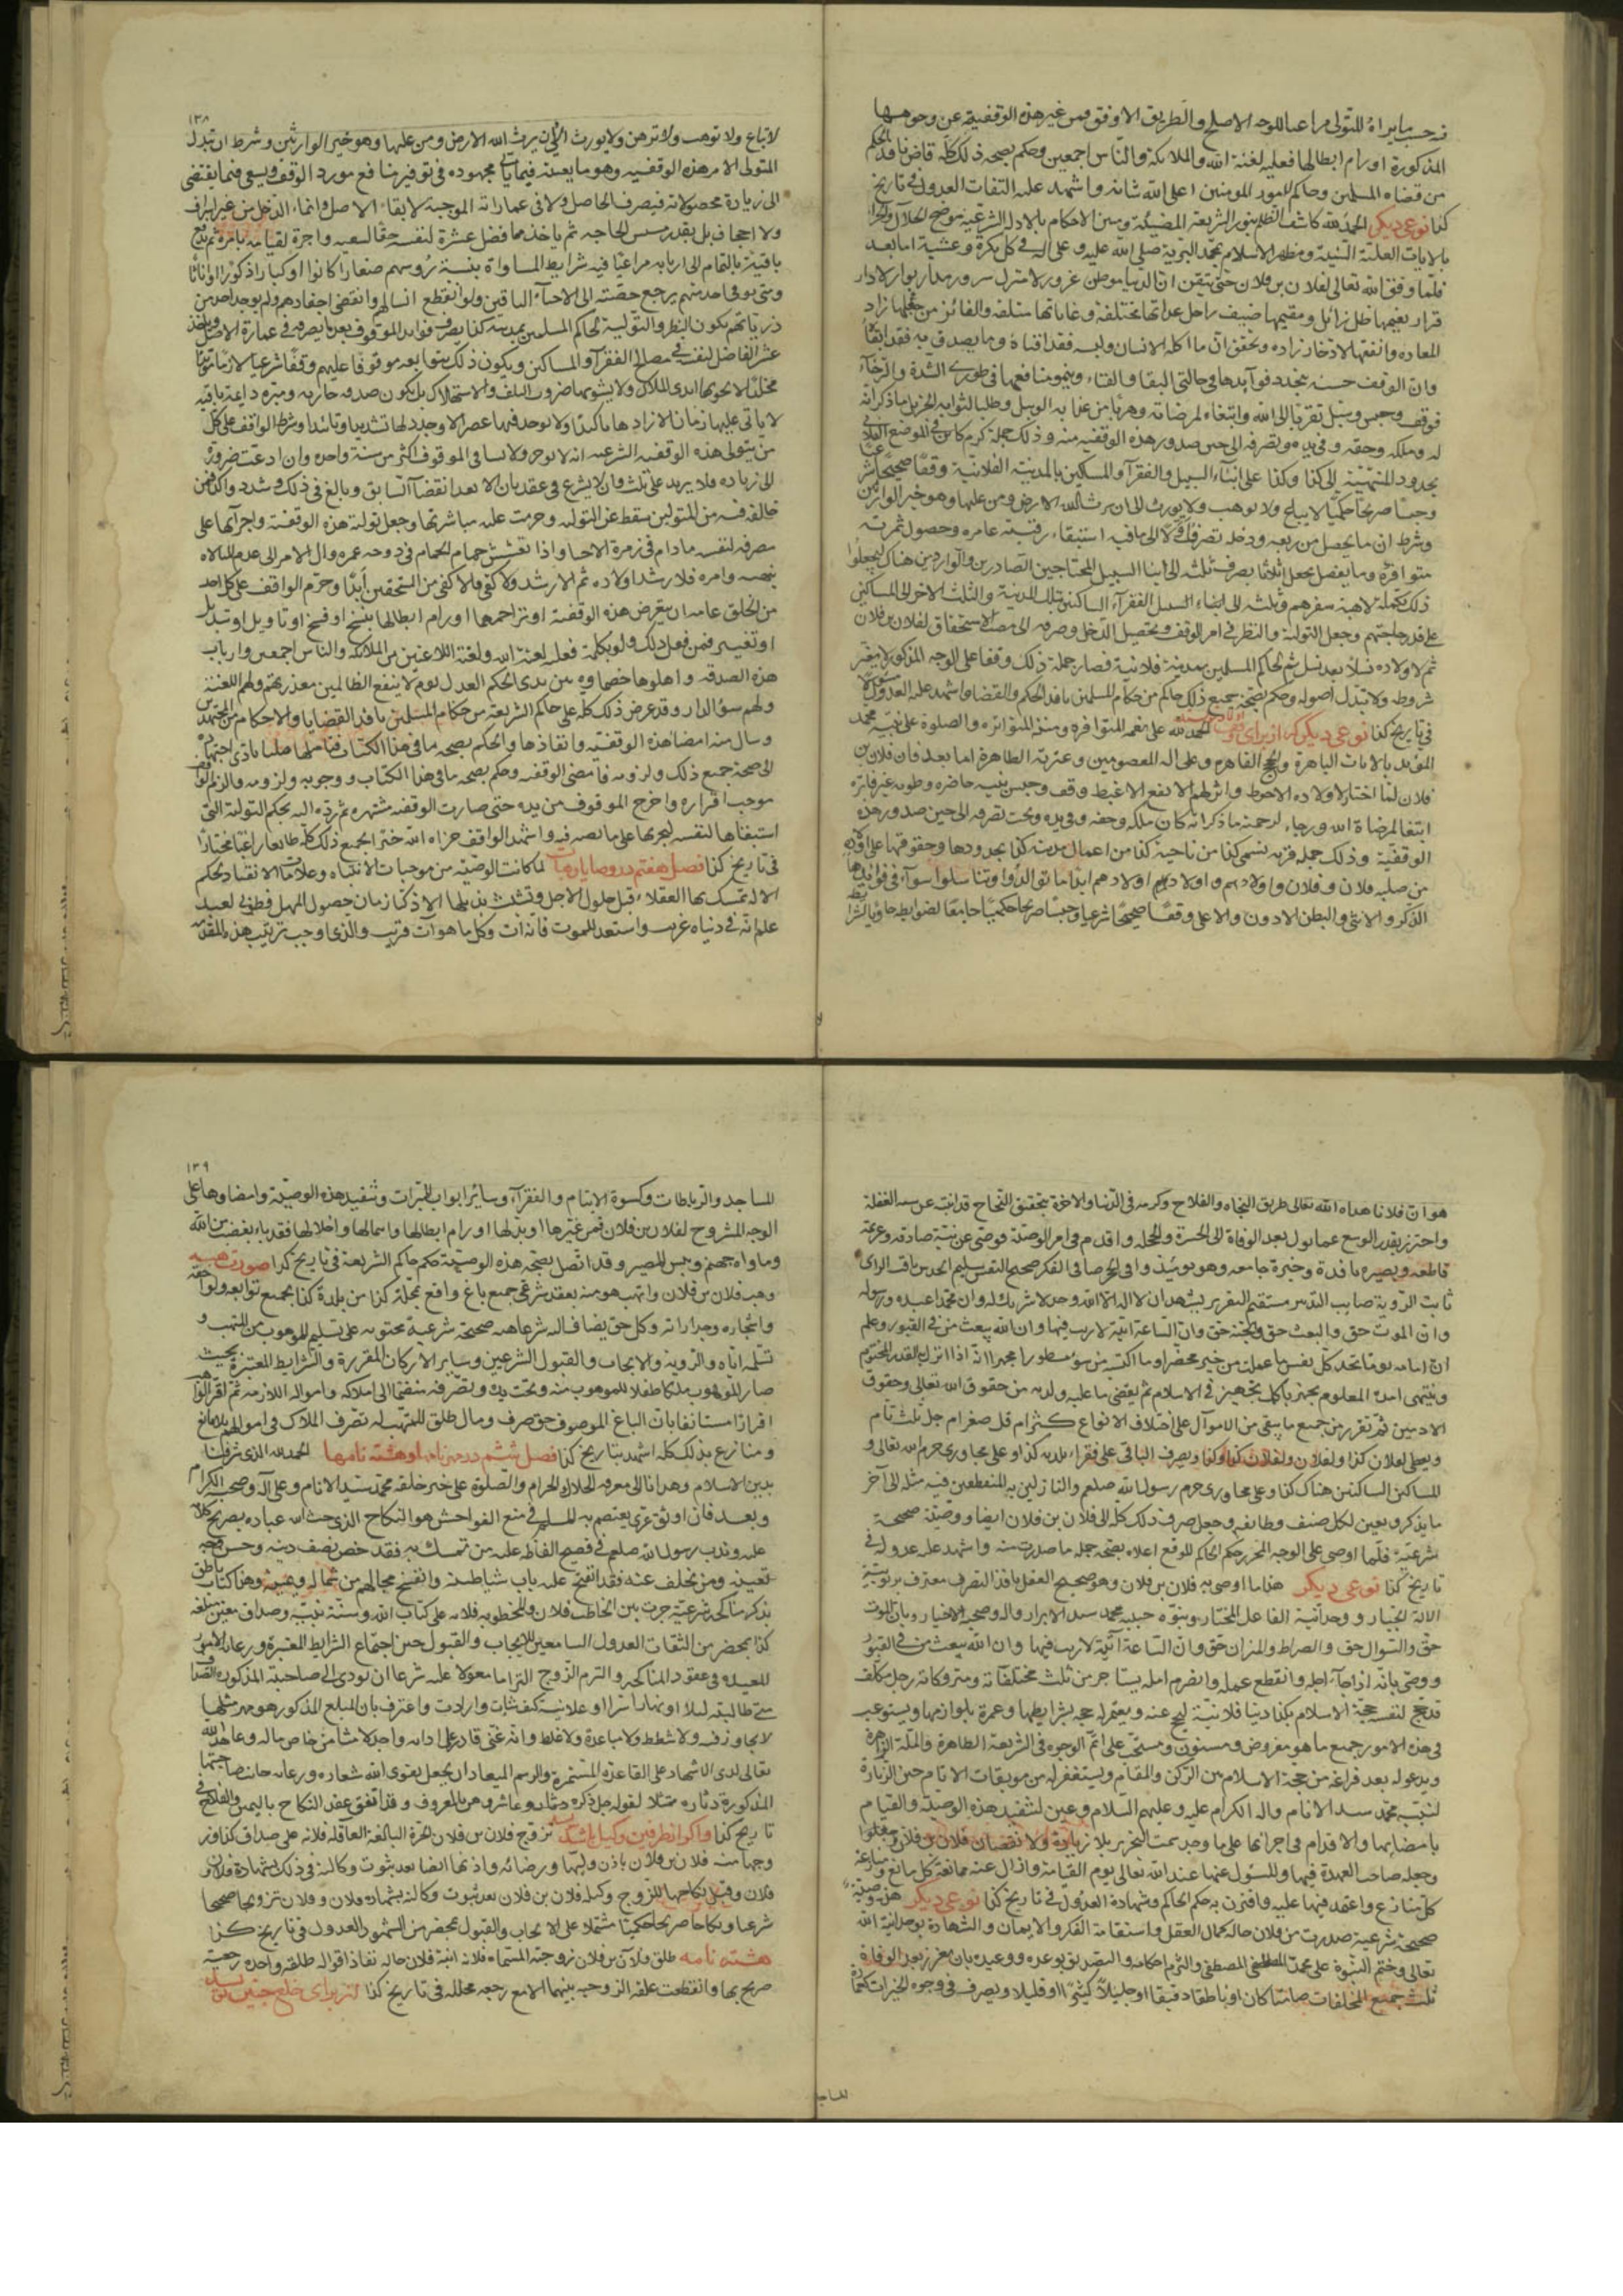 فحسب ما يراه المتولى مراعيا للوجه الاصلح والطريق الاوفق فمن غير هذه الوقفية عن وجوهها
المذكورة او رام ابطالها فعليه لعنة الله والملائكة والناس اجمعين وحكم بصحة ذلك كله قاض نافذ الحكم
من قضاة المسلمين وحاكم لامور المومنين اعلى الله شانه واشهد عليه الثقات العدول فى تاريخ
كذا نوعى ديكر الحمد لله كاشف الظلم بنور الشريعة المضيئة ومبين الاحكام بالادلة الشرعية موضح الحلال والحرام
بالايات العلية السنية ومظهر الاسلام بمحمد صلى الله عليه وعلى اله فى كل بكرة وعشية اما بعد
فلما وفق الله تعالى لفلان بن فلان حتى تيقن ان الدنيا موطن غرور لا منزل سرور ومدار بوار لا دار
قرار نعيمها ظل زائل ومقيمها ضيف راحل عداتها مختلفة وغاياتها متلفة والفائز من جعلها زاد
المعاده وانفقها لادخار زاده وتحقق ان ما اكله الانسان ولبسه فقد افناه وما يصدق به فقد ابقاه
وان الوقف حسنة يتجدد فوايدها فى حالتى البقا والفناء وينمو منافعها فى طورى الشدة والرخاء
فوقف وحبس وسبل تقربا الى الله وابتغاء لمرضاته وهربا من عذابه الوبيل وطلبا لثوابه الجزيل ما ذكر انه
له وملكه وحقه وفى يده وتصرفه الى حين صدور هذه الوقفية منه وذلك جملة كرم كاين فى الموضع الفلانى
بحدود المنتهية الى كذا وكذا على ابناء السبيل والفقرآ والمسكين بالمدينة الفلانية وقفا صحيحا شرعيا
وحبسا صريحا حكميا لا يباع ولا يوهب ولا يورث الى ان يرث الله الارض ومن عليها وهو خير الوارثين
وشرط ان ما يحصل من ريعه ودخله تصرف اولا الى ما فيه استبقاء رقبته عامره وحصول ثمرته
متوافرة وما يفضل يجعل اثلاثا يصرف ثلث الى ابنا السبيل المحتاجين الصادرين والواردين هناك ليجعلوا
ذلك تكملة لاهبة سفرهم وثلثه الى ابناء السبيل الفقرآء الساكنين بتلك المدينة والثلث الاخر الى المساكين
على قدر حاجتهم وجعل التولية والنظر فى امر الوقف وتحصيل الدخل وصرفه الى مصب الاستحقاق لفلان بن فلان
ثم لاولاده نسلا بعد نسل ثم لحاكم المسلمين بمدينة فلانية فصار جملة ذلك وقفا على الوجه المذكور لا يغير
شروطه ولا يتبدل اصوله وحكم بصحة جميع ذلك حاكم من حكام المسلمين نافذ الحكم والقضا واشهد عليه العدول
فى تاريخ كذا نوعى ديكر كه از براى الحمد لله على نعمه المتوافرة ومننه المتواترة والصلوة على نبيه محمد
المؤيد بالايات الباهرة والحجج القاهرة وعلى اله المعصومين وعترته الطاهرة اما بعد فان فلان بن
فلان لما اختار لاولاده الاحوط واثر لهم الانفع الاغبط وقف وحبس بنية حاضره وطوية غير فاتره
ابتغا لمرضاة الله ورجاء لرحمته ما ذكر انه كان ملكه وحقه وفى يده وتحت تصرفه الى حين صدور هذه
الوقفية وذلك جملة قرية تسمى كذا من ناحية كذا من اعمال مدينة كذا بحدودها وحقوقها على اولاده
من صلبه فلان وفلان واولادهم واولاد اولادهم ابدا ما توالدوا وتناسلوا سواء فى فوايدها
الذكر والانثى والبطن الادون والاعلى وقفا صحيحا شرعيا وحبسا صريحا حكميا جامعا لضوابط حاويا لشرائط
١٣٨
لا تباع ولا توهب ولا ترهن ولا يورث الى ان يرث الله الارض ومن عليها وهو خير الوارثين وشرط ان يبذل
المتولى الامر هذه الوقفية وهو ما يعينه فيما ياتى مجهوده فى توفير منافع مورد الوقف ويسعى فيما يقتضى
الى زيادة محصولاته فيصرف الحاصل ولا فى عماراته الموجبة لابقاء الاصل وانماء الدخل من غير اسراف
ولا اجحاف بل بقدر مسيس الحاجه ثم ياخذ مما فضل عشرة لنفسه حقا لسعيه واجرة لقيامه بامره ثم يدفع
باقيه بالتمام الى اربابه مراعيا فيه شرايط المساواة بنسبة رؤسهم صغارا كانوا او كبارا ذكورا او اناثا
ومتى توفى احد منهم يرجع حصته الى الاحياء الباقين ولو انقطع انسالهم وانقضى احفادهم ولم يوجد احد من
ذرياتهم يكون النظر والتولية لحاكم المسلمين بمدينة كذا يصرف فوايد الموقوف بعد ما يصرفه فى عمارة الاصل وياخذ
عشر الفاضل لنفسه فى مصالح الفقرآ والمساكين ويكون ذلك بتوابعه موقوفا عليهم وقفا شرعيا لازما مؤبدا
مخلدا لا تحوبها ايدى الملاك ولا يشوبها ضروب التلف والاستهلاك بل يكون صدقة جاريه ومبرة دايمة باقيه
لا ياتى عليها زمان الا زادها تاكيدا ولا يوجد فيها عصر الا وجدد لها تشديدا وتابيدا وشرط الواقف على كل
من يتولى هذه الوقفيه الشرعيه انه لا يوجر ولا يسا فى الموقوف اكثر من سنة واحده وان ادعت ضرورة
الى زياده فلا يزيد على ثلث وان لا يشرع فى عقد ثان الا بعد انقضا السابق وبالغ فى ذلك وشدد واكد فمن
خالفه فيه من المتولين سقط عن التوليه وحرمت عليه مباشرتها وجعل تولية هذه الوقفية واجرآءها على
مصرفه لنفسه ما دام فى زمرة الاحيا واذا تعشش حمام الحمام فى دوحه عمره وال الامر الى عدم المبالاه
بنهيه وامره فلا رشد اولاده ثم الارشد ولاكفى فالاكفى من المستحقين ابدا وحرم الواقف على كل احد
من الخلق عامه ان يتعرض هذه الوقفية او تزاحمها او رام ابطالها بنسخ او فسخ او تاويل او تبديل
او تغيير فمن فعل ذلك ولو بكلمة فعليه لعنة الله ولعنة اللاعنين من الملائكه والناس اجمعين وارباب
هذه الصدقه واهلوها خصماوه بين يدى الحكم العدل يوم لا ينفع الظالمين معذرتهم ولهم اللعنة
ولهم سوء الدار وقد عرض ذلك كله على حاكم الشريعة من حكام المسلمين نافذ القضايا والاحكام من المجتهد
وسال منه امضا هذه الوقفية وانفاذها والحكم بصحة ما فى هذا الكتاب فتاملها مليا فادى اجتهاده
الى صحة جميع ذلك ولزومه فامضى الوقفيه وحكم بصحه ما فى هذا الكتاب ووجوبه ولزومه والزم الواقف
موجب اقراره واخرج الموقوف من يده حتى صارت الوقفيه مشتهره ثم رده اليه بحكم التولية التى
استبقاها لنفسه ليجريها على ما نصه فيه واشهد الواقف جزاه الله خيرا بجميع ذلك كله طايعا راغبا مختارا
فى تاريخ كذا فصل هفتم در وصايا رها لما كانت الوصية من موجبات الانتباه وعلامات الانقياد لحكم
الاله تمسك بها العقلاء قبل حلول الاجل وتشبث بذيلها الاذكيا زمان حصول المهل فطوبى لعبد
علم انه فى دنياه غريب واستعد للموت فانه آت وكل ما هو آت قريب والذى اوجب ترتيب هذه المقدمة
هو ان فلانا هداه الله تعالى طريق النجاه والفلاح وكرمه فى الدنيا والاخرة بتحقيق النجاح قد انتبه عن سنة الغفلة
واحترز بقدر الوسع عما يول بعد الوفاة الى الحسرة والخجله واقدم فى امر الوصية فوصى عن نية صادقه وعزيمة
قاطعه وبصيره نافذة وخبرة جامعه وهو يومئذ وافى الحرصا فى الفكر صحيح النفس سليم الحد بن ثاقب الراى
ثابت الروية صايب التدبير مستقيم التقرير يشهد ان لا اله الا الله وحده لا شريك له وان محمدا عبده ورسوله
وان الموت حق والبعث حق والجنة حق وان الساعة اتية لا ريب فيها وان الله يبعث من فى القبور وعلم
ان امامه يوما تجد كل نفس ما عملت من خير محضرا وما اكتسبه من سوء مسطورا مجبرا انه اذا انزل به القدر المحتوم
وينتهى امده المعلوم يجهز باكمل تجهيز فى الاسلام ثم يقضى ما عليه ولديه من حقوق الله تعالى وحقوق
الادميين ثم تقرر من جميع ما يبقى من الاموال على اختلاف الانواع كثر ام قل صغر ام جل ثلث تام
ويعطى لفلان كذا ولفلان ولفلان كذا وكذا ويصرف الباقى على فقراء بلدة كذا او على مجاورى حرم الله تعالى و
المساكين الساكنين هناك كذا وعلى مجاورى حرم رسول الله صلعم والنازلين به المنقطعين فيه مثله الى آخر
ما يذكر ويعين لكل صنف وطايفه وجعل صرف ذلك كله الى فلان بن فلان ايصا ووصية صحيحة
شرعية فلما اوصى على الوجه المحرر حكم الحاكم الموقع اعلاه بصحة جملة ما صدرت منه واشهد عليه عدوله فى
تاريخ كذا نوعى ديكر هذا ما اوصى به فلان بن فلان وهو صحيح العقل نافذ التصرف معترف بربوبية
الاله الجبار ووحدانية الفاعل المختار ونبوة حبيبه محمد سيد الابرار واله وصحبه الاخيار وبان الموت
حق والسوال حق والصراط والميزان حق وان الساعة اتية لا ريب فيها وان الله يبعث من فى القبور
ووصى بانه اذا جآء اجله وانقطع عمله وانصرم امله يستاجر من ثلث مختلفاته ومتروكاته رجل مكلف
قد حج لنفسه حجة الاسلام بكذا دينا فلانية ليحج عنه ويعتمر له حجة بشرايطها وعمرة بلوازمها ويستوعب
فى هذه الامور جميع ما هو مفروض ومسنون ومستحب على اتم الوجوه فى الشريعة الطاهرة والملة الزاهرة
ويدعو له بعد فراغه من حجة الاسلام بين الركن والمقام ويستغفر له من موبقات الاثام حين الزيارة
لنبيه محمد سيد الانام واله الكرام عليه وعليهم السلام وعين لتنفيذ هذه الوصية والقيام
بامضايها والاقدام فى اجرائها على ما وجد سمت التحرير بلا زيادة ولا نقصان فلان بن فلان
وجعله صاحب العهدة فيها والمسئول عنها عند الله تعالى يوم القيامة وازال عنه ممانعة كل مانع ومنازعة
كل منازع واعتمد فيها عليه واقترن به حكم الحاكم وشهادة العدول فى تاريخ كذا نوعى ديكر هذه وصية
صحيحة شرعية صدرت من فلان حاله كمال العقل واستقامة الفكر والايمان والشهادة بوحدانية الله
تعالى وختم النبوة على محمد المصطفى والتزم احكامه والتصديق بوعده ووعيده بان يفرز بعد الوفاة
ثلث جميع المخلفات صامتا كان او ناطقا دقيقا او جليلا كثيرا او قليلا ويصرف فى وجوه الخيرات كعمارة
المساجد
١٣٩
المساجد والرباطات وكسوة الايتام والفقرآء وسائر ابواب المبرات وتنفيذ هذه الوصية وامضاوها على
الوجه المشروح لفلان بن فلان فمن غيرها او بدلها او رام ابطالها واسمالها واخلالها فقد باء بغضب من الله
وماواه جهنم وبئس المصير وقد اتصل بصحة هذه الوصية حكم حاكم الشريعة فى تاريخ كذا صورت هبه
وهب فلان بن فلان واتهب هو منه بعقد شرعى جميع باغ واقع بمحلة كذا من بلدة كذا بجميع توابعه ولواحقه
واشجاره وجداراته وكل حق يضاف اليه شرعا هبة صحيحة شرعية محتويه على تسليم الموهوب من المتهب و
تسلمه اياه والروية والايجاب والقبول الشرعيين وساير الاركان المقررة والشرايط المعتبرة بحيث
صار الموهوب ملكا طلقا للموهوب منه وتحت يده وتصرفه منضما الى املاكه وامواله اللازمه ثم اقر الواهب
اقرارا مستانفا بان الباغ الموصوف حق صرف ومال طلق للمتهب له تصرف الملاك فى اموالهم بلا مانع
ومنازع بذلك كله اشهد بتاريخ كذا فصل ششم در مهرنامه او هشته نامها الحمد لله الذى شرفنا
بدين الاسلام وهدانا الى معرفة الحلال والحرام والصلوة على خير خلقه محمد سيد الانام وعلى آله وصحبه الكرام
وبعد فان اوثق عرى يعتصم به المسلم فى منع الفواحش هو النكاح الذى حث الله عباده بصريح كلامه
عليه وندب رسول الله صلعم فى فصيح الفاظه عليه من تمسك به فقد خص نصف دينه وحسن وجه
تعيينه ومن تخلف عنه فقد انفتح عليه باب شياطينه وانفسخ مجالهم من شماله ويمينه وهذا كتاب ناطق
بذكر مناكحة شرعية جرت بين الخاطب فلان والمخطوبه فلانه على كتاب الله وسنة نبيه وصداق معين مبلغه
كذا بمحضر من الثقات العدول السامعين للايجاب والقبول حين اجتماع الشرايط المعتبرة ورعاية الامور
المعهودة فى عقود المناكحه والتزم الزوج التزاما معولا عليه شرعا ان يودى الى صاحبته المذكورة الصداق
متى طالبته ليلا او نهارا سرا او علانية كيف شات وارادت واعترف بان المبلغ المذكور هو مهر مثلها
لا تجاوز فيه ولا شطط ولا مباعدة ولا غلط وانه غنى قادر على ادائه واجد لامثاله من خاص ماله وعاهد الله
تعالى لدى الاشهاد على القاعدة المستمرة والرسم المعتاد ان يجعل تقوى الله شعاره ورعاية جانب صاحبتها
المذكورة دثاره ممتثلا لقوله جل ذكره وعاشروهن بالمعروف وقد اتفق عقد النكاح باليمن والفلاح فى
تاريخ كذا واكر از طرفين وكيل باشد تزوج فلان بن فلان الحرة البالغة العاقلة فلانه على صداق كذا وز
وجها منه فلان بن فلان باذن وليها ورضائه واذنها ايضا بعد ثبوت وكالته فى ذلك بشهادة فلان و
فلان وقبل نكاحها للزوج وكيله فلان بن فلان بعد ثبوت وكالته بشهادة فلان وفلان تزويجا صحيحا
شرعيا ونكاحا صريحا حكميا مشتملا على الايجاب والقبول بمحضر من الشهود العدول فى تاريخ كذا
هشته نامه طلق فلان بن فلان زوجته المسماه فلانه ابنة فلان حالة نفاذ اقواله طلقة واحدة رجعية
صريح بها وانقطعت علقة الزوجيه بينهما الا مع رجعه محلله فى تاريخ كذا